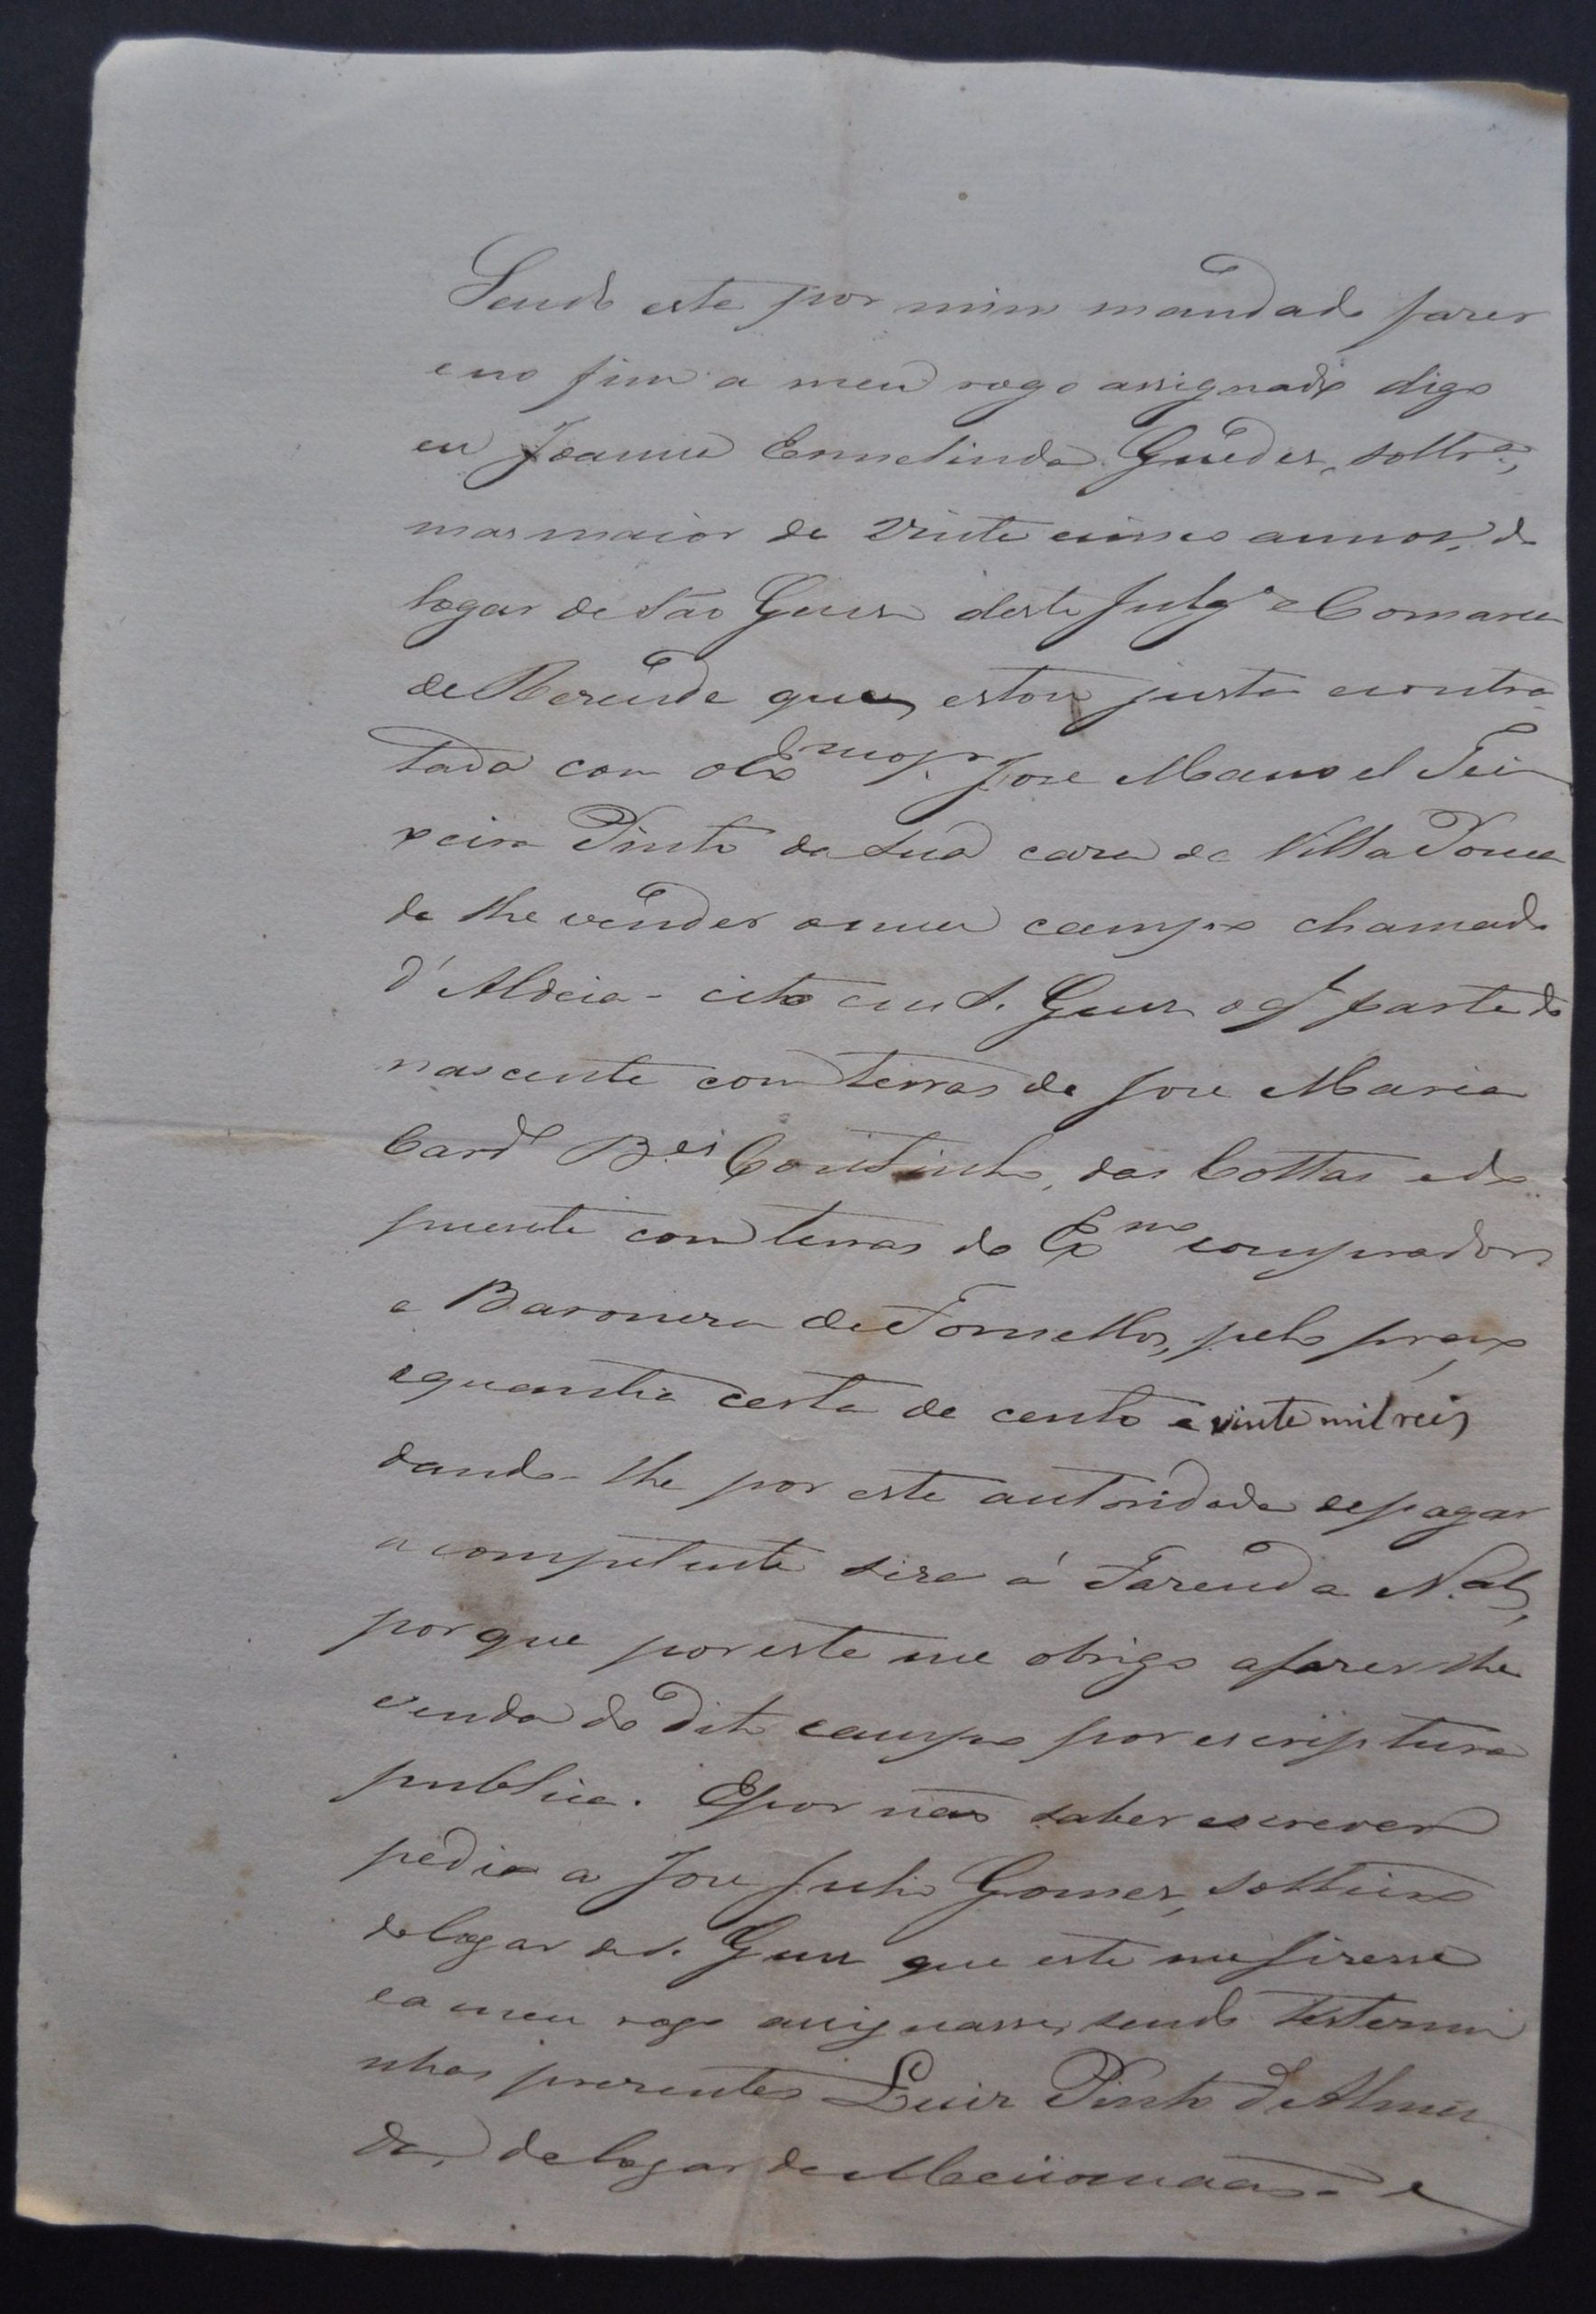 Sendo este por mim mandado fazer
e no fim a meu rogo assignado digo
eu Joanna Ermelinda Guedes, soltrª,
mas maior de vinte cinco annos, do
logar de São Gens deste Julgº e Comarca
de Rezende que estou justa e contra
tada com o Exmo Sr. José Manoel Tei
xeira Pinto da sua caza de Villa Pouca
de lhe vender o meu campo chamado
d'Aldeia - cito em S. Gens o qˡ parte do
nascente com terras de José Maria
Cardº Bᵉˢ Coutinho, das Cottas e do
puente com terras do Exmº comprador
e Baroneza de Fornellos, pelo preço
e quantia certa de cento e vinte mil reis
dando-lhe por este autoridade de pagar
a competente siza á Fazenda N.al,
por que por este me obrigo a fazer lhe
venda do dito campo por escriptura
publica. E por não saber escrever
pedi a José Julio Gomes, soltiro
do logar de S. Gens que este me fizesse
e a meu rogo assignasse, sendo testemu
nhas prezentes Luiz Pinto d'Almei
da, do logar de e